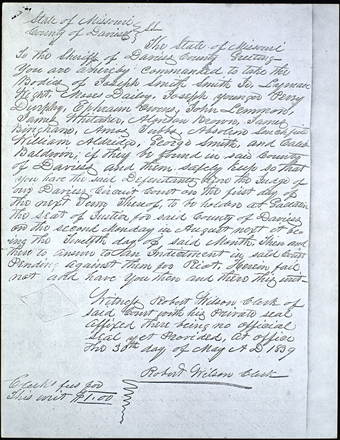 State of Missouri
County of Daviess } SS
The State of Missouri
To the Sheriff of Daviess County Greeting
You are hereby Commanded to take the
Bodies of Joseph Smith Smith Sr, Lyman
Wight, Amos Daley, Joseph younger Perry
Durphy, Ephraim Owens, John Lemmon,
James Whitaker, Alanson Brown, James
Bingham, Amos Tubbs
William Aldridge, George Smith, and Caleb
Baldwin, if they be found in said County
of Daviess and them safely keep so that
you have the said Defendants before the Judge of
our Daviess Circuit Court on the first day of
the next Term Thereof, to be holden at
the seat of Justice for said County of Daviess
on the second Monday in August next it be
ing the Twelfth day of said Month, then and
there to answer to an Indictment in said Court
Pending against them for Riot, Herein fail
not and have you then and there this writ
Witness Robert Wilson Clerk of
said Court with his Private seal
affixed there being no official
seal yet Provided, at office
this 30th day of May A D 1839
Robert Wilson Clerk
Clerk's fees for
This writ $1.00